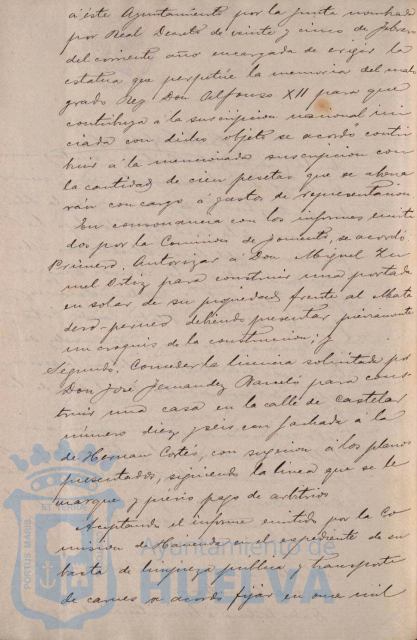 á éste Ayuntamiento por la Junta nombrada
por Real Decreto de veinte y cinco de Febrero
del corriente año encargada de erigir la
estatua que perpetúe la memoria del malo-
grado Rey Don Alfonso XII para que
contribuya á la suscripcion nacional ini-
ciada con dicho objeto se acordó contri-
buir á la mencionada suscripcion con
la cantidad de cien pesetas que se abona-
rán con cargo a gastos de representación
En consonancia con los informes emiti-
dos por la Comision de Fomento, se acordó
Primero. Autorizar á Don Miguel
Ortiz para construir una portada
en solar de su propiedad frente al Mata-
dero debiendo presentar previamente
un croquis de la construccion; y
Segundo. Conceder la licencia solicitada por
Don José Fernandez Barceló para cons-
truir una casa en la calle de Castelar
número diez y seis con fachada á la
de Hernan Cortés, con sugecion á los planos
presentados, siguiendo la linea que se le
marque y previo pago de arbitrios
Aceptando el informe emitido por la Co-
mision de Hacienda en el expediente de su-
basta de limpieza pública y transporte
de carnes se acordó fijar en once mil
PORTUS MARIS
ET TERRÆ
Ayuntamiento de
HUELVA